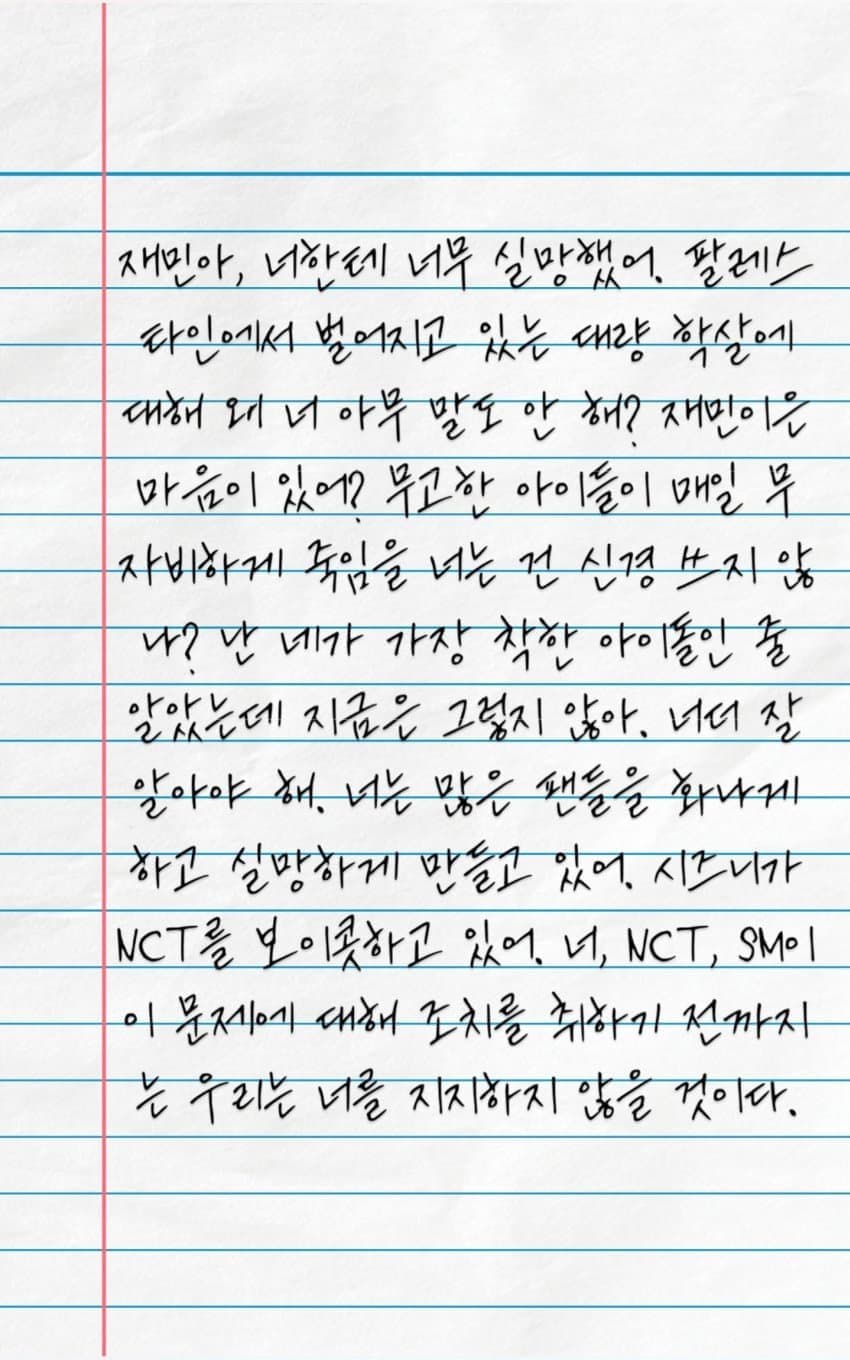 재민아, 너한테 너무 실망했어. 팔레스
타인에서 벌어지고 있는 대량 학살에
대해 왜 너 아무 말도 안 해? 재민이은
마음이 있어? 무고한 아이들이 매일 무
자비하게 죽임을 너는 건 신경 쓰지 않
나? 난 네가 가장 착한 아이돌인 줄
알았는데 지금은 그렇지 않아. 너더 잘
알아야 해. 너는 많은 팬들을 화나게
하고 실망하게 만들고 있어. 시즈니가
NCT를 보이콧하고 있어. 너, NCT, SM이
이 문제에 대해 조치를 취하기 전까지
는 우리는 너를 지지하지 않을 것이다.